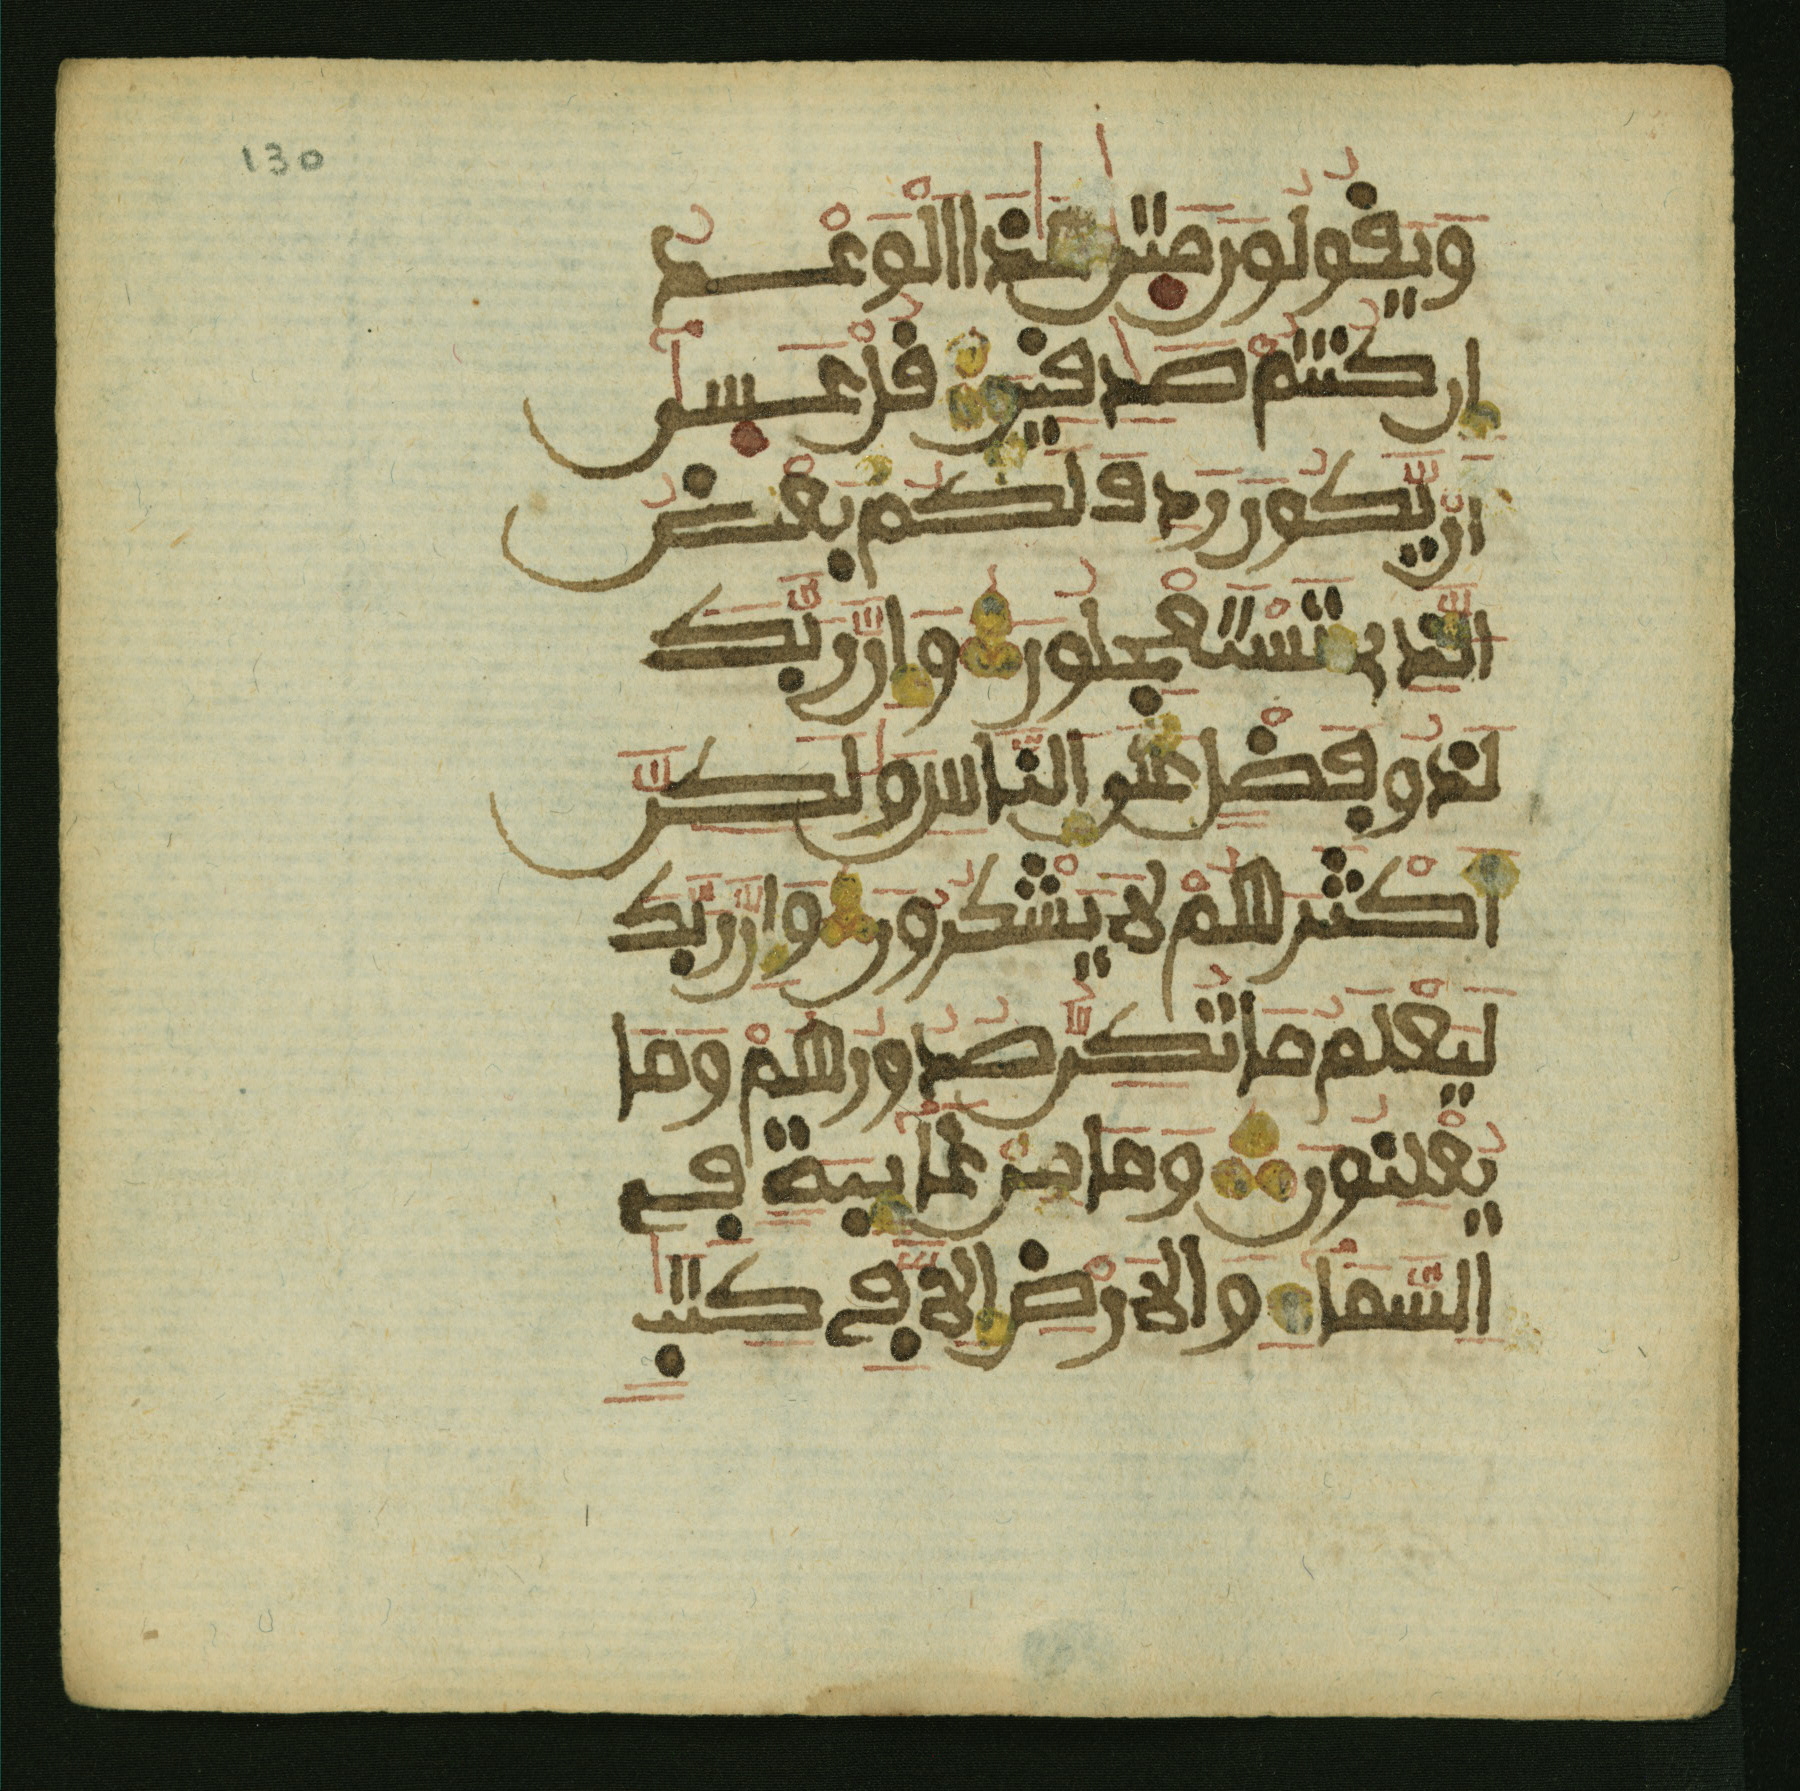 130
وَيَقُولُونَ مَتَىٰ هَٰذَا الْوَعْدُ
إِن كُنتُمْ صَٰدِقِينَ قُلْ عَسَىٰٓ
أَن يَّكُونَ رَدِفَ لَكُم بَعْضُ
الَّذِي تَسْتَعْجِلُونَ وَإِنَّ رَبَّكَ
لَذُو فَضْلٍ عَلَى النَّاسِ وَلَٰكِنَّ
أَكْثَرَهُمْ لَا يَشْكُرُونَ وَإِنَّ رَبَّكَ
لَيَعْلَمُ مَا تُكِنُّ صُدُورُهُمْ وَمَا
يُعْلِنُونَ وَمَا مِنْ غَآئِبَةٍ فِي
السَّمَآءِ وَالْأَرْضِ إِلَّا فِي كِتَٰبٍ